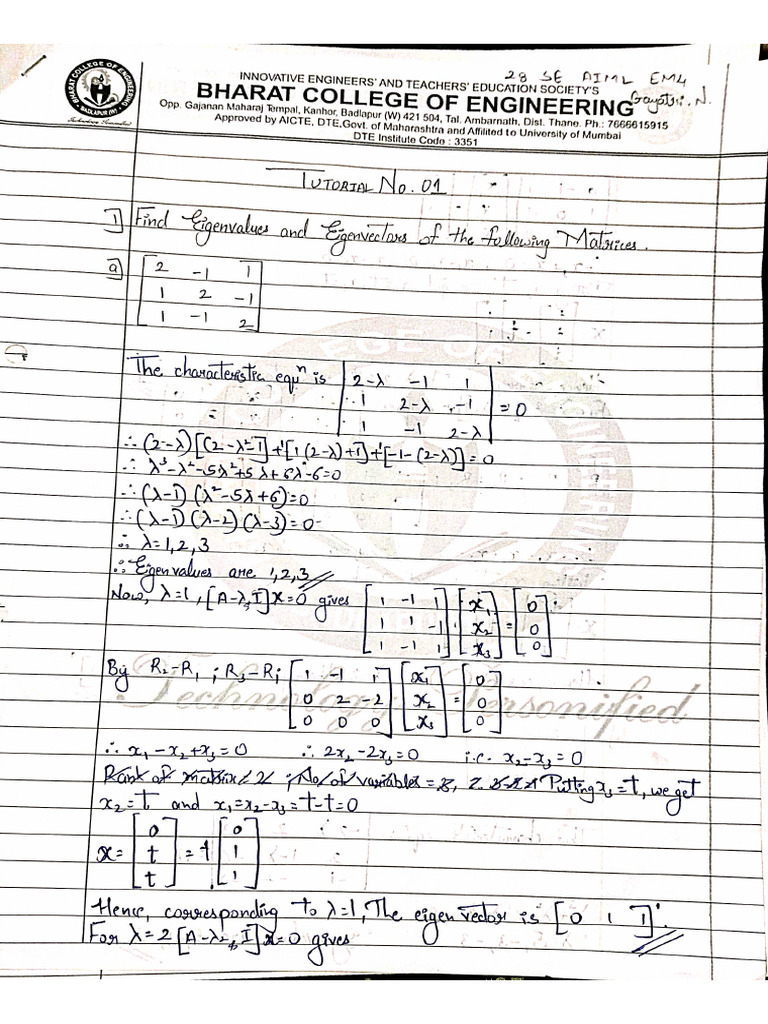 28 SE AIML EM4
INNOVATIVE ENGINEERS' AND TEACHERS' EDUCATION SOCIETY'S
BHARAT COLLEGE OF ENGINEERING
Gayatri. N.
Opp. Gajanan Maharaj Tempal, Kanhor, Badlapur (W) 421 504, Tal. Ambarnath, Dist. Thane. Ph.: 7666615915
Approved by AICTE, DTE,Govt. of Maharashtra and Affilited to University of Mumbai
DTE Institute Code : 3351
BHARAT COLLEGE OF ENGINEERING
BADLAPUR (W)
TUTORIAL No. 01
1] Find Eigenvalues and Eigenvectors of the following Matrices.
a] [2 -1 1
1 2 -1
1 -1 2]
The characteristic equⁿ is |2-λ -1 1
1 2-λ -1
1 -1 2-λ| = 0
∴ (2-λ)[(2-λ²-1]+1[1(2-λ)+1]+1[-1-(2-λ)]=0
∴ λ³-λ²-5λ²+5λ+6λ-6=0
∴ (λ-1)(λ²-5λ+6)=0
∴ (λ-1)(λ-2)(λ-3)=0
∴ λ=1,2,3
∴ Eigenvalues are 1,2,3
Now, λ=1, [A-λ₁I]x=0 gives [1 -1 1
1 1 -1
1 -1 1] [x₁
x₂
x₃] = [0
0
0]
By R₂-R₁ ; R₃-R₁ [1 -1 1
0 2 -2
0 0 0] [x₁
x₂
x₃] = [0
0
0]
Technology Personified
∴ x₁-x₂+x₃=0 ∴ 2x₂-2x₃=0 i.e. x₂-x₃=0
Rank of matrix No. of variables = 3, Putting x₃=t, we get
x₂=t and x₁=x₂-x₃=t-t=0
x= [0
t
t] = t [0
1
1]
Hence, corresponding to λ=1, The eigen vector is [0 1 1]'.
For λ=2 [A-λ₂I]x=0 gives